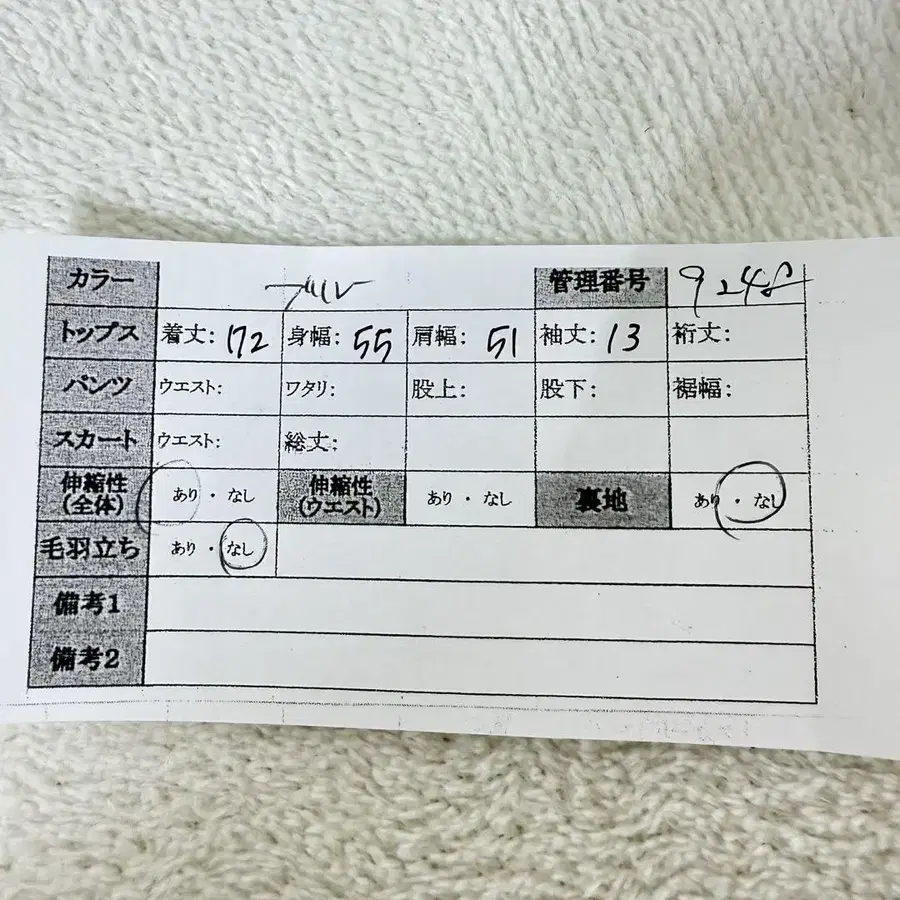 カラー ブルー 管理番号 9248
トップス 着丈: 172 身幅: 55 肩幅: 51 袖丈: 13 裄丈:
パンツ ウエスト: ワタリ: 股上: 股下: 裾幅:
スカート ウエスト: 総丈:
伸縮性(全体) あり・なし 伸縮性(ウエスト) あり・なし 裏地 あり・なし
毛羽立ち あり・なし
備考1
備考2